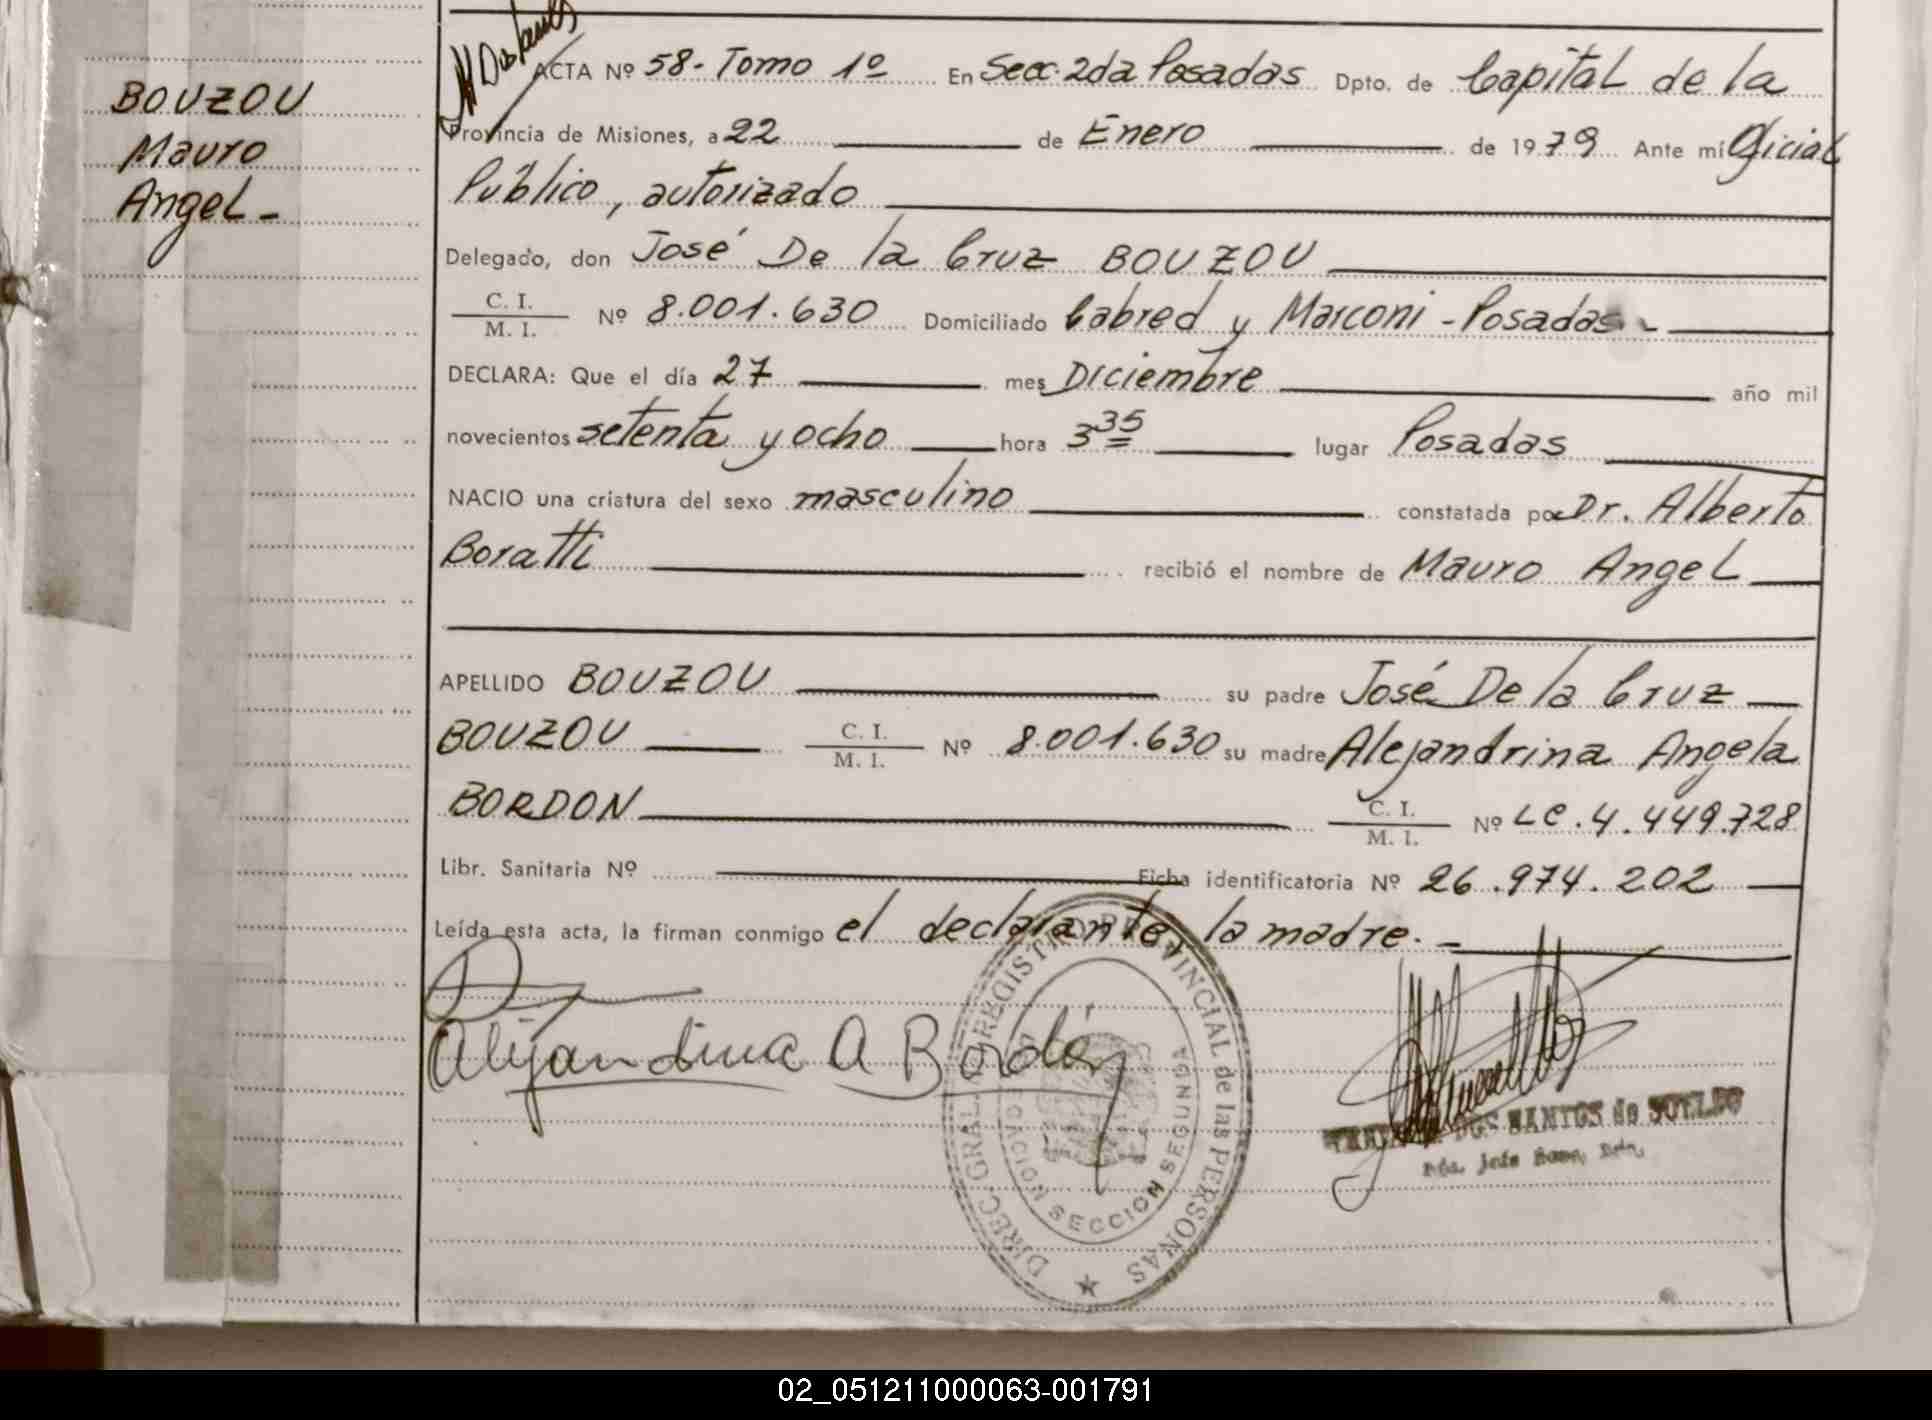 BOUZOU
Mauro
Angel -
ACTA Nº 58 - Tomo 1º En Secc. 2da Posadas Dpto. de Capital de la
Provincia de Misiones, a 22 de Enero de 1979 Ante mi Oficial
Público, autorizado
Delegado, don José De la Cruz BOUZOU
C. I.
M. I. Nº 8.001.630 Domiciliado Cabred y Marconi - Posadas -
DECLARA: Que el día 27 mes Diciembre año mil
novecientos setenta y ocho hora 3 35 lugar Posadas
NACIO una criatura del sexo masculino constatada por Dr. Alberto
Boratti recibió el nombre de Mauro Angel
APELLIDO BOUZOU su padre José De la Cruz
BOUZOU C. I.
M. I. Nº 8.001.630 su madre Alejandrina Angela
BORDON C. I.
M. I. Nº LC. 4.449.728
Libr. Sanitaria Nº Ficha identificatoria Nº 26.974.202
Leída esta acta, la firman conmigo el declarante, la madre. -
Alejandrina A Bordón
DIREC. GRAL. REGISTRO PROVINCIAL de las PERSONAS
SECCION SEGUNDA
DOS SANTOS de SOTELO
02_051211000063-001791